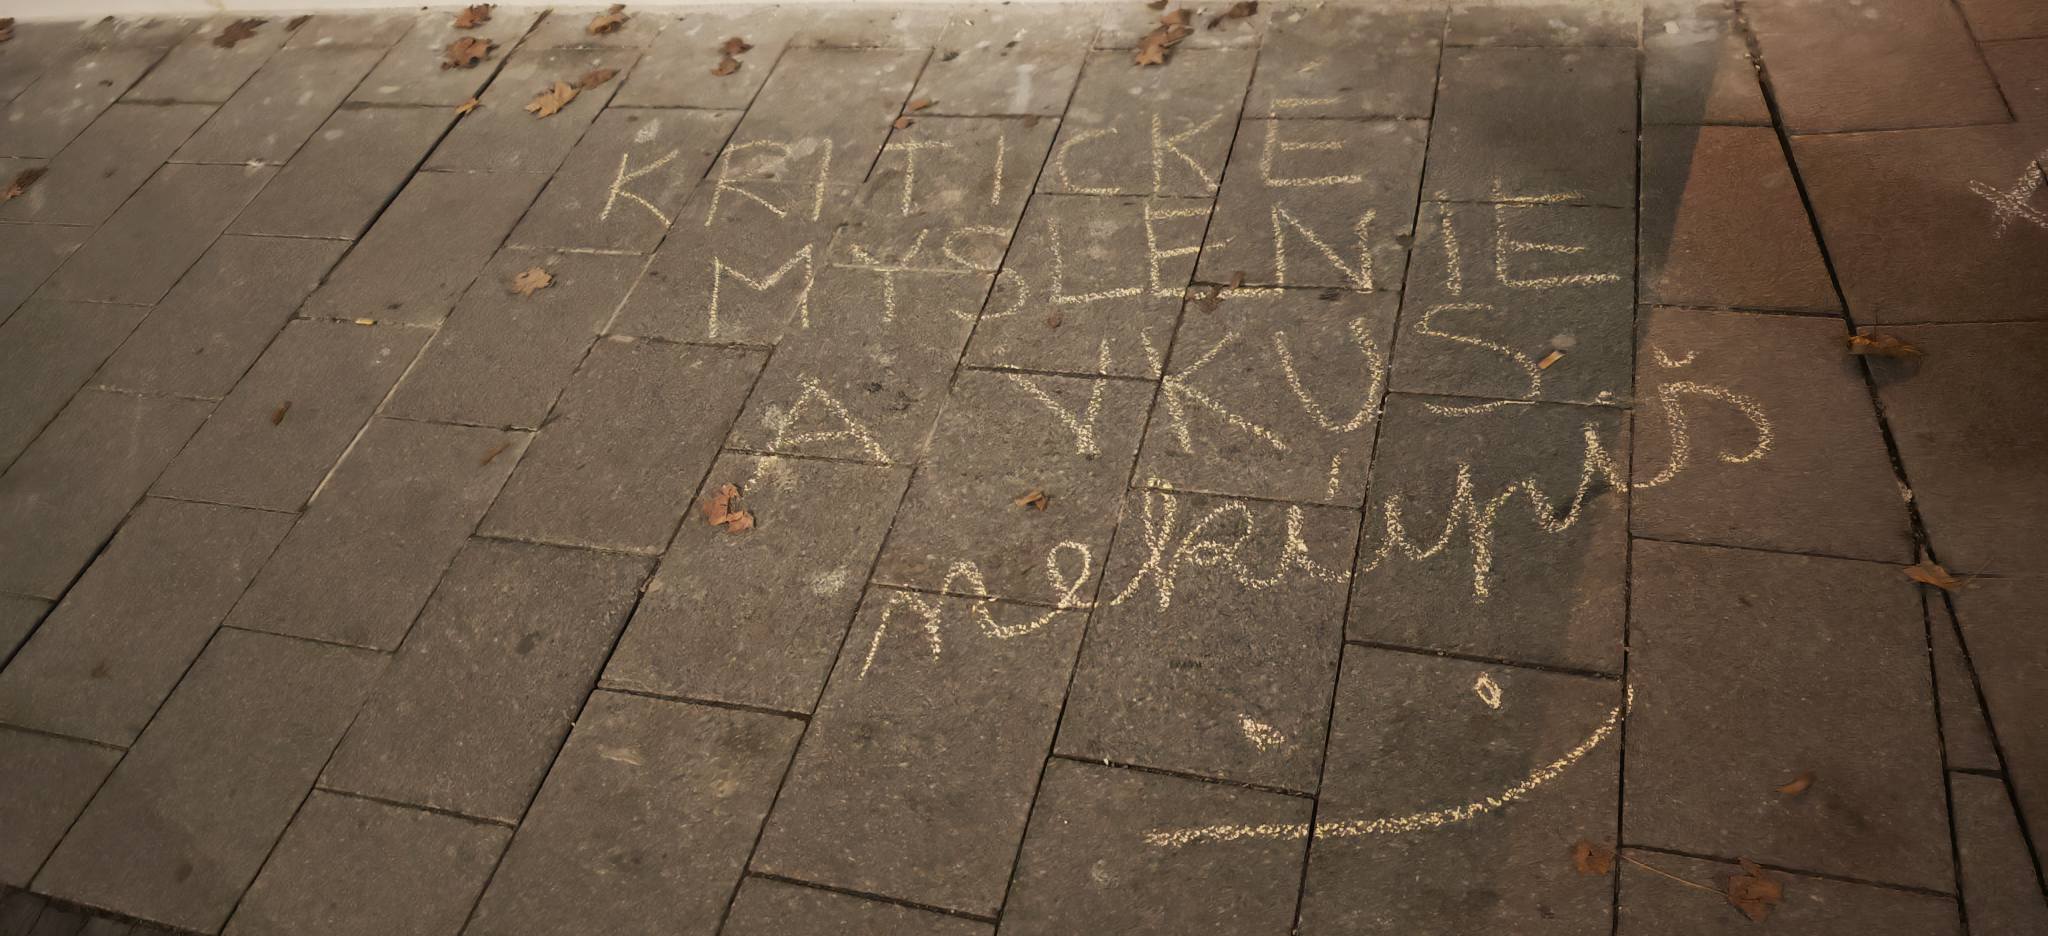 KRITICKÉ
MYSLENIE
A VKUS
nekúpiš